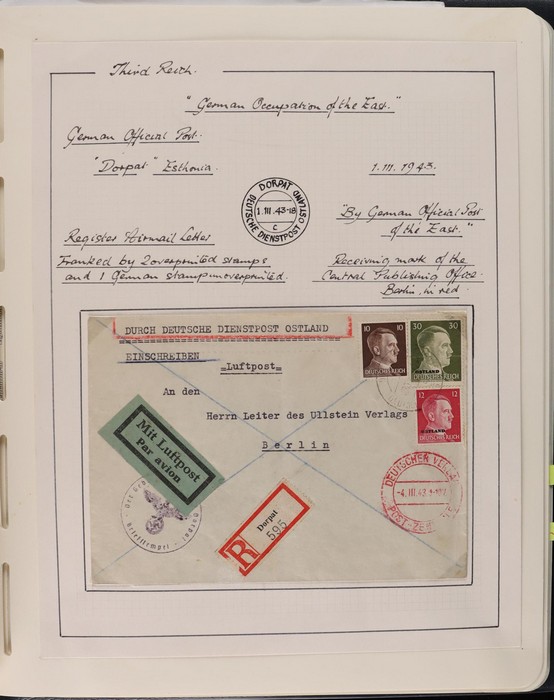 Third Reich.
"German Occupation of the East."
German Official Post.
"Dorpat" Esthonia.
1.III.1943.
DORPAT
1.III.43-18
c
DEUTSCHE DIENSTPOST OSTLAND
"By German Official Post
of the East."
Register Airmail Letter
Franked by 2 overprinted stamps
and 1 German stamp unoverprinted.
Receiving mark of the
Central Publishing Office
Berlin, in red.
DURCH DEUTSCHE DIENSTPOST OSTLAND
EINSCHREIBEN
Luftpost
10 10
DEUTSCHES REICH
30 30
OSTLAND
DEUTSCHES REICH
12 12
OSTLAND
DEUTSCHES REICH
An den
Herrn Leiter des Ullstein Verlags
Berlin
Mit Luftpost
Par avion
Briefstempel
R
Dorpat
595
DEUTSCHER
-4.III.43
POST-